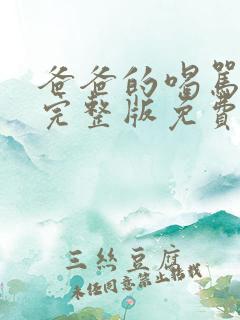 爸爸的喝罵
完整版免費
三丝豆腐
未经同意禁止转载